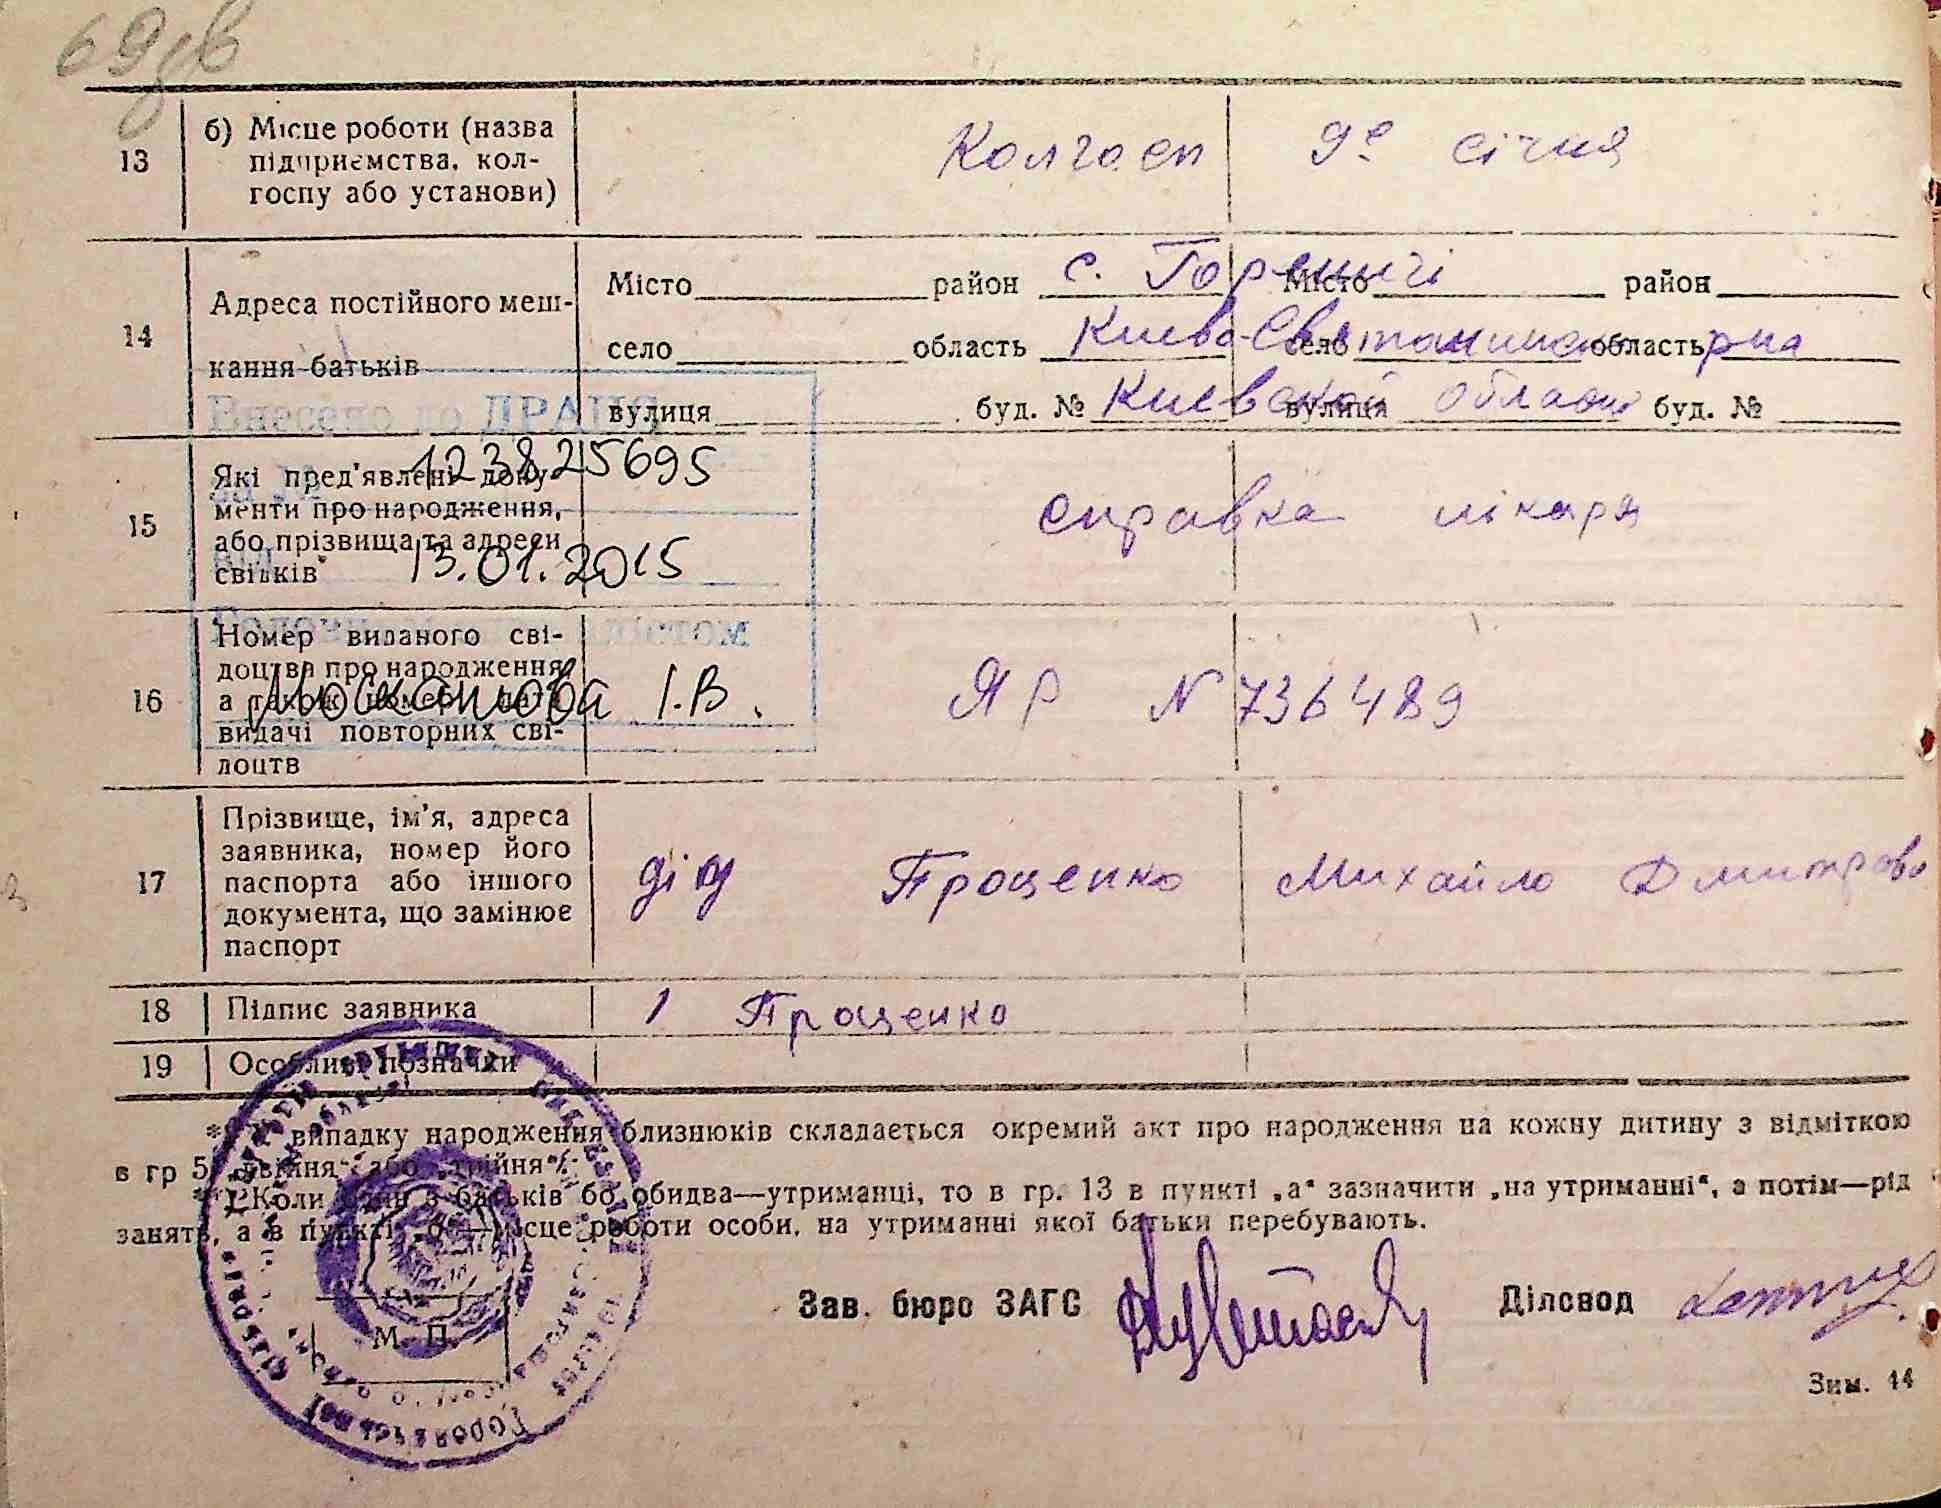 69 зв
13
б) Місце роботи (назва
підприємства, кол-
госпу або установи)
Колгосп 9е січня
14
Адреса постійного меш-
кання батьків
Місто район с. Гореничі Місто район
село область Києво-Святошинс село область р-на
вулиця буд. № Киевской вулиця области буд. №
Внесено до ДРАЦС
за №
123825695
15
Які пред'явлені доку-
менти про народження,
або прізвища та адреси
свідків
справка лікаря
від 13.01.2015
16
Номер виданого сві-
доцтва про народження
а також номер і дата
видачі повторних сві-
доцтв
І.В.
ЯР N 736489
17
Прізвище, ім'я, адреса
заявника, номер його
паспорта або іншого
документа, що замінює
паспорт
дід Проценко Михайло Дмитрово
18 Підпис заявника
Проценко
19 Особливі позначки
*) У випадку народження близнюків складається окремий акт про народження на кожну дитину з відміткою
в гр 5 „двійня“ або „трійня“.
**) Коли один з батьків бо обидва—утриманці, то в гр. 13 в пункті „а“ зазначити „на утриманні“, а потім—рід
занять, а в пункті „б“—місце роботи особи, на утриманні якої батьки перебувають.
Зав. бюро ЗАГС
Діловод
М. П.
Зим. 14